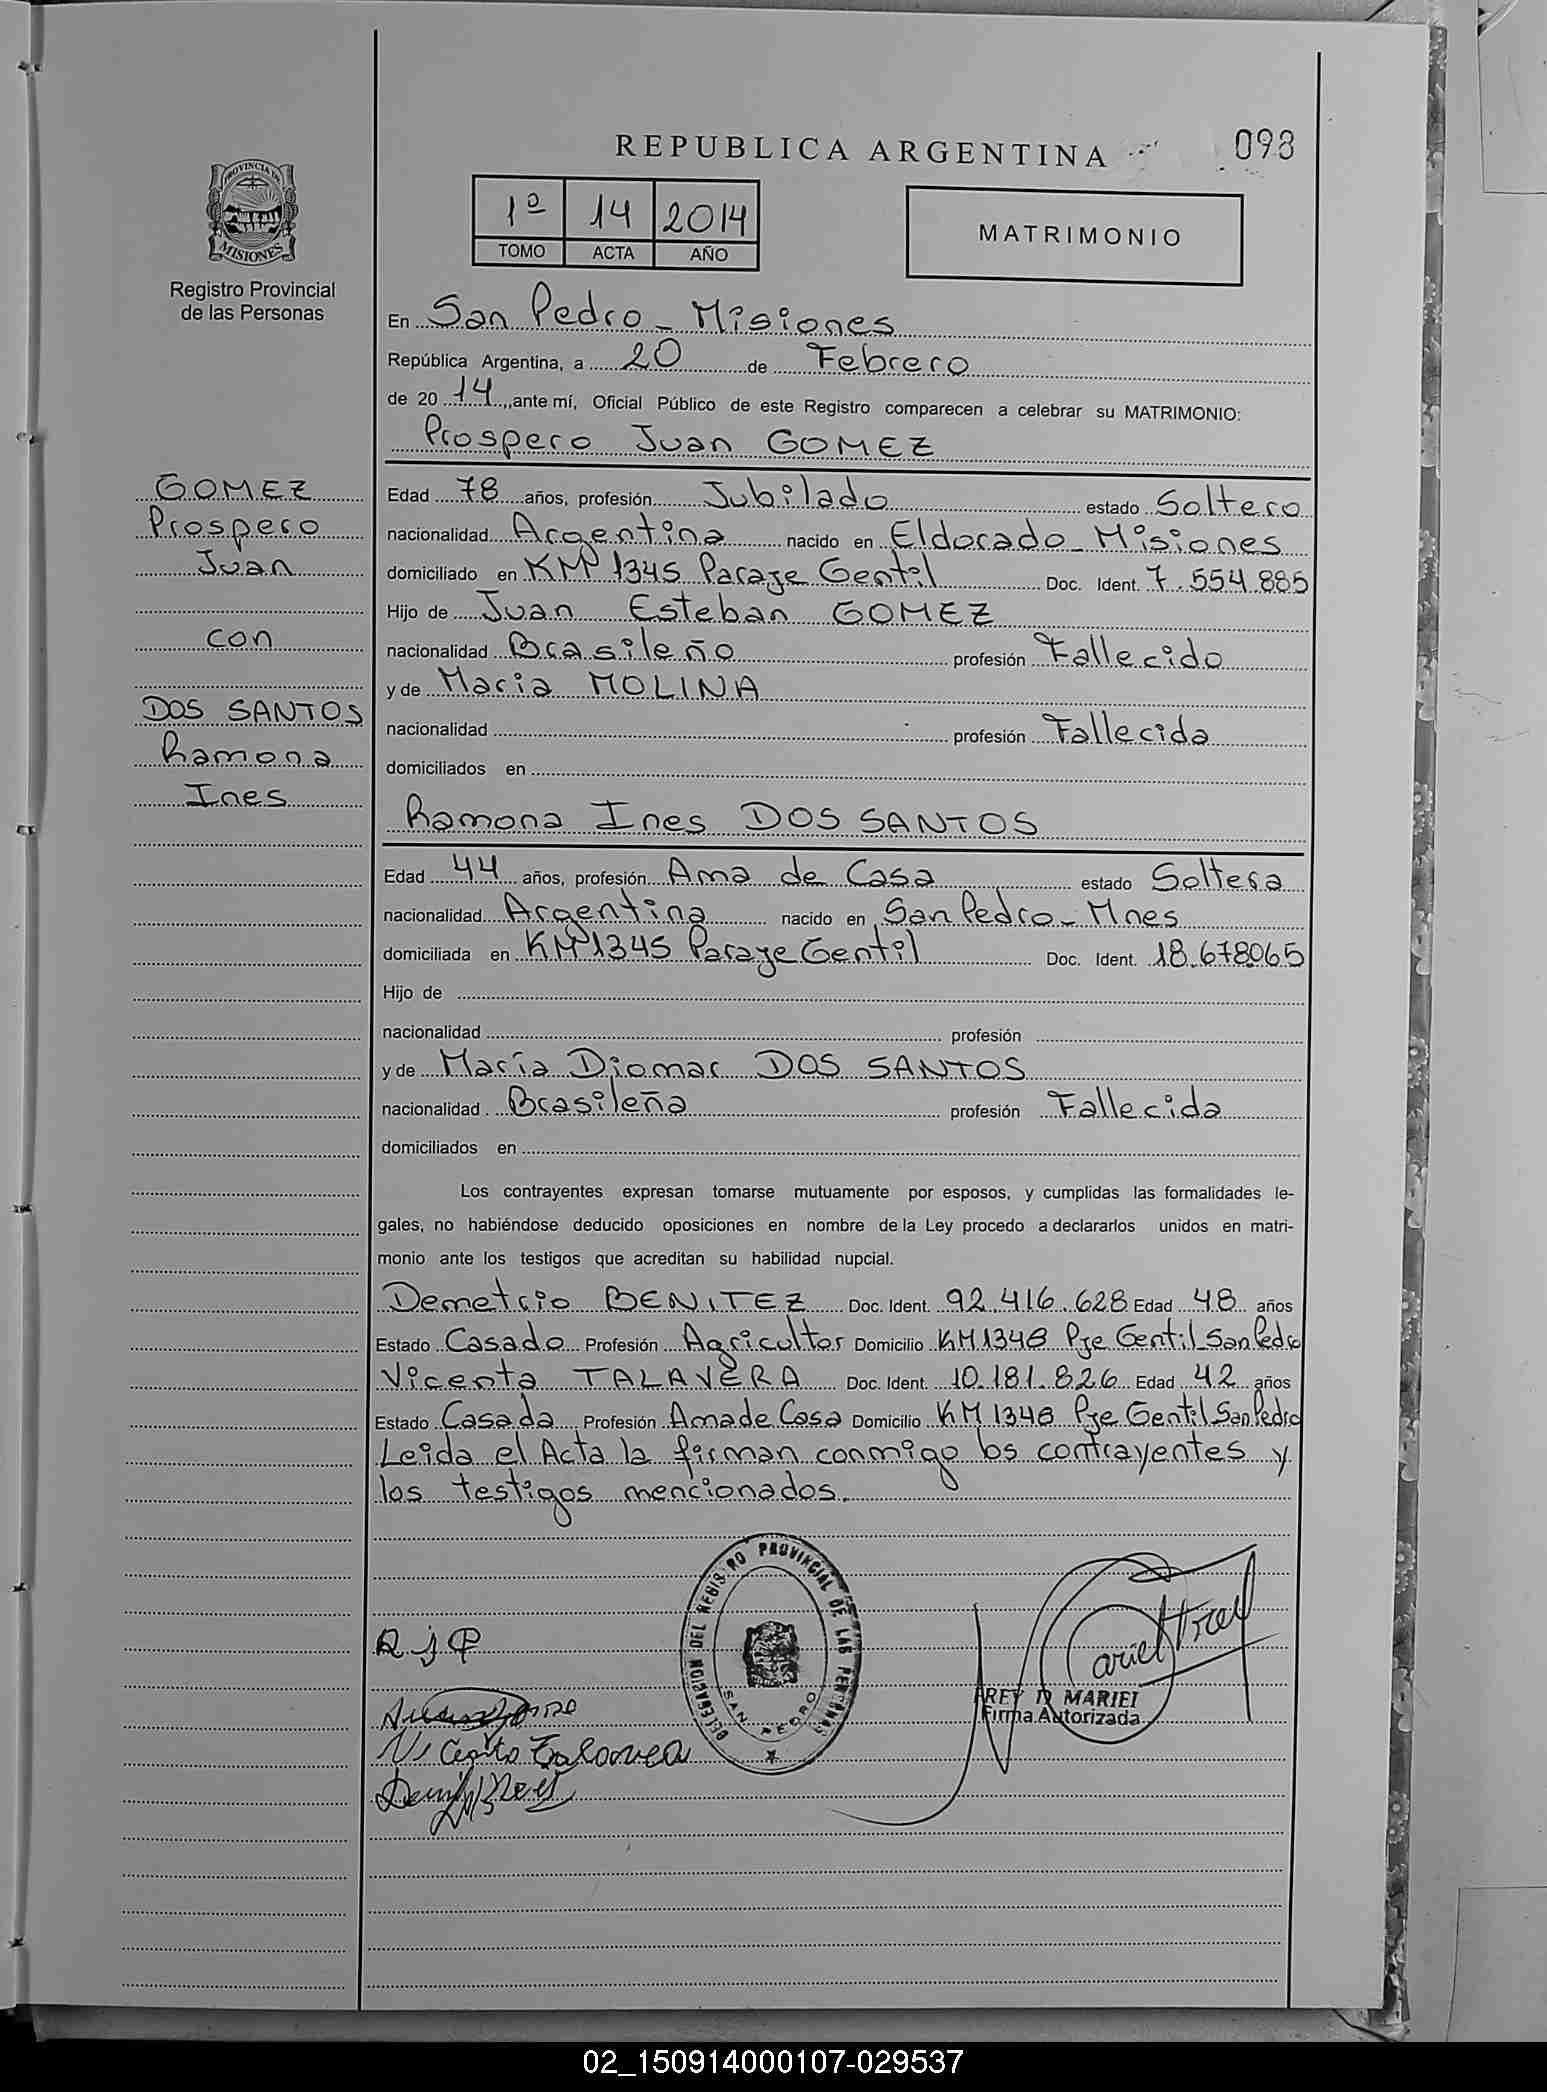 REPUBLICA ARGENTINA
093
PROVINCIA DE
MISIONES
Registro Provincial
de las Personas
1º 14 2014
TOMO ACTA AÑO
MATRIMONIO
En San Pedro - Misiones
República Argentina, a 20 de Febrero
de 20 14, ante mí, Oficial Público de este Registro comparecen a celebrar su MATRIMONIO:
Prospero Juan GOMEZ
GOMEZ
Prospero
Juan
con
DOS SANTOS
Ramona
Ines
Edad 78 años, profesión Jubilado estado Soltero
nacionalidad Argentina nacido en Eldorado - Misiones
domiciliado en KM 1345 Paraje Gentil Doc. Ident. 7.554.885
Hijo de Juan Esteban GOMEZ
nacionalidad Brasileño profesión Fallecido
y de Maria MOLINA
nacionalidad profesión Fallecida
domiciliados en
Ramona Ines DOS SANTOS
Edad 44 años, profesión Ama de Casa estado Soltera
nacionalidad Argentina nacido en San Pedro - Mnes
domiciliada en KM 1345 Paraje Gentil Doc. Ident. 18.678065
Hijo de
nacionalidad profesión
y de María Diomar DOS SANTOS
nacionalidad Brasileña profesión Fallecida
domiciliados en
Los contrayentes expresan tomarse mutuamente por esposos, y cumplidas las formalidades le-
gales, no habiéndose deducido oposiciones en nombre de la Ley procedo a declararlos unidos en matri-
monio ante los testigos que acreditan su habilidad nupcial.
Demetrio BENITEZ Doc. Ident. 92.416.628 Edad 48 años
Estado Casado Profesión Agricultor Domicilio KM 1348 Pje Gentil San Pedro
Vicenta TALAVERA Doc. Ident. 10.181.826 Edad 42 años
Estado Casada Profesión Ama de Casa Domicilio KM 1348 Pje Gentil San Pedro
Leida el Acta la firman conmigo los contrayentes y
los testigos mencionados.
DELEGACION DEL REGISTRO PROVINCIAL DE LAS PERSONAS
SAN PEDRO
FREY D MARIEL
Firma Autorizada
02_150914000107-029537